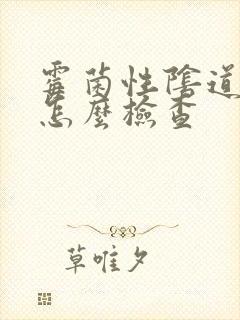 霉菌性陰道
怎麼檢查
草唯夕